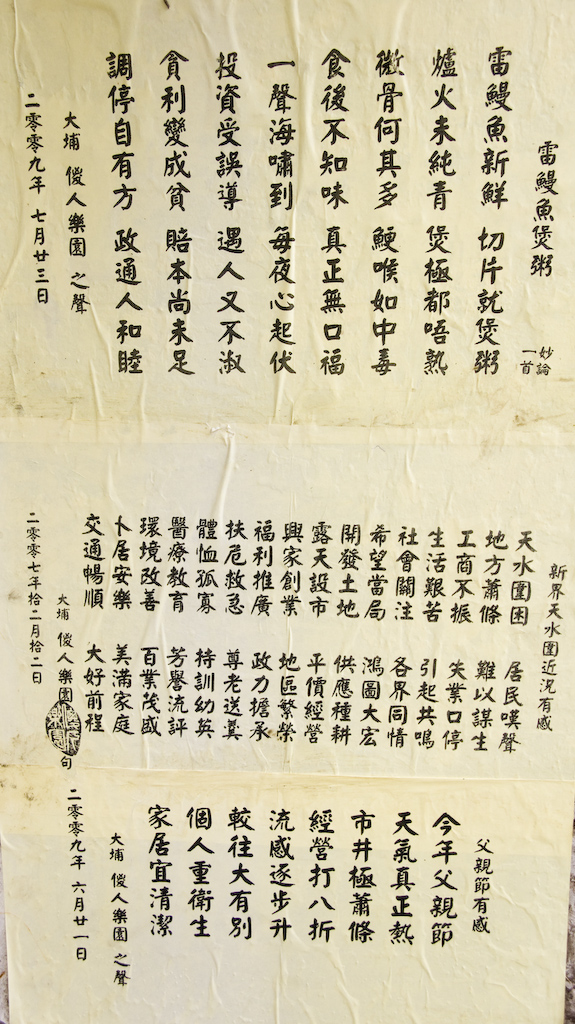 雷鰻魚煲粥
妙論
一首
雷鰻魚新鮮 切片就煲粥
爐火未純青 煲極都唔熟
微骨何其多 鯁喉如中毒
食後不知味 真正無口福
一聲海嘯到 每夜心起伏
投資受誤導 遇人又不淑
貪利變成貧 賠本尚未足
調停自有方 政通人和睦
大埔 傻人樂園 之聲
二零零九年 七月廿三日
新界天水圍近況有感
天水圍困 居民嘆聲
地方蕭條 難以謀生
工商不振 失業口停
生活艱苦 引起共鳴
社會關注 各界同情
希望當局 鴻圖大宏
開發土地 供應種耕
露天設市 平價經營
興家創業 地區繁榮
福利推廣 政力擔承
扶危救急 尊老送羹
體恤孤寡 持訓幼英
醫療教育 芳譽流評
環境改善 百業茂盛
卜居安樂 美滿家庭
交通暢順 大好前程
大埔 傻人樂園 句
二零零七年拾二月拾二日
父親節有感
今年父親節
天氣真正熱
市井極蕭條
經營打八折
流感逐步升
較往大有別
個人重衛生
家居宜清潔
大埔 傻人樂園 之聲
二零零九年 六月廿一日